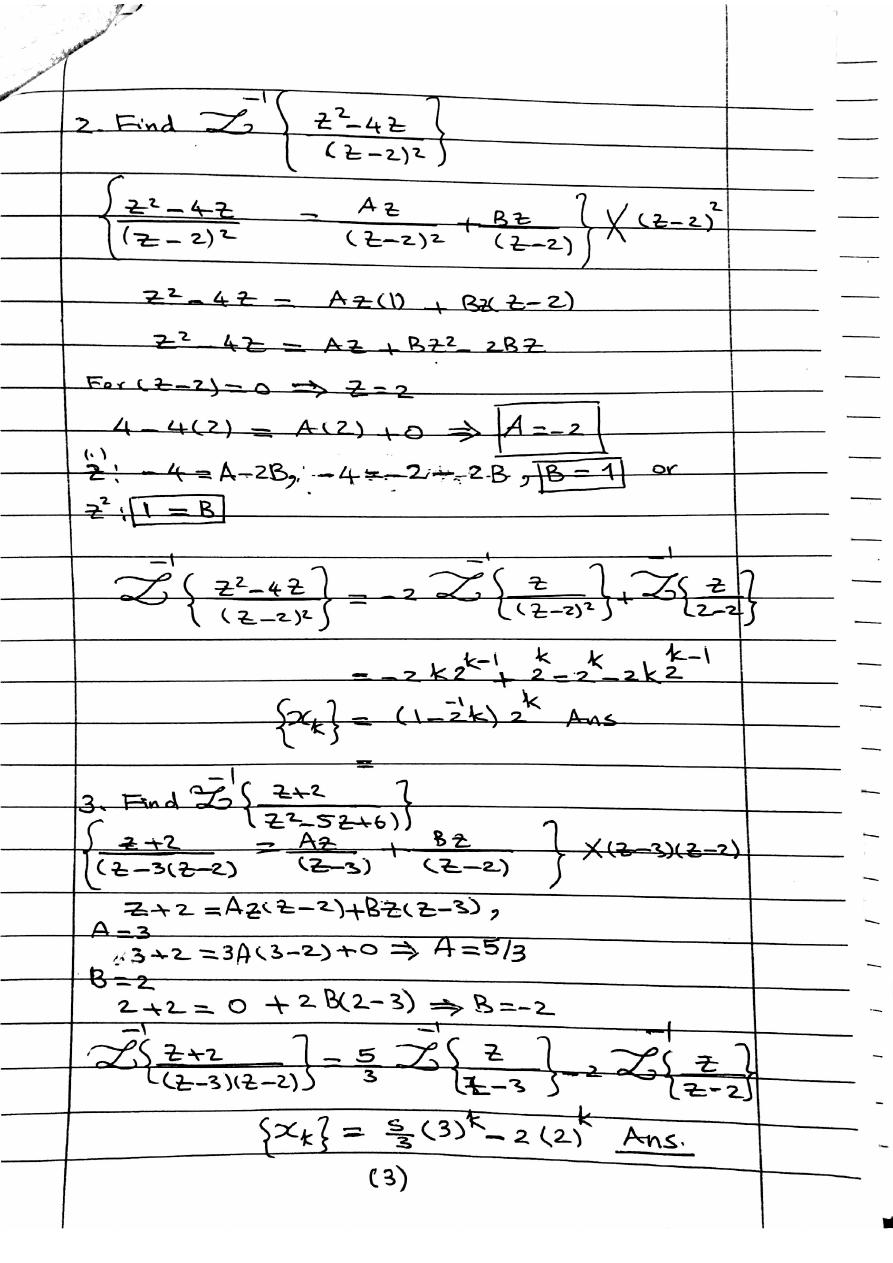 2. Find Z⁻¹ { (z² − 4z) / (z−2)² }
{ (z² − 4z) / (z−2)² = Az / (z−2)² + Bz / (z−2) } X (z−2)²
z² − 4z = Az(1) + Bz(z−2)
z² − 4z = Az + Bz² − 2Bz
For (z−2) = 0 ⇒ z = 2
4 − 4(2) = A(2) + 0 ⇒ A = −2
z⁽¹⁾: −4 = A−2B, −4 = −2 − 2B, B = 1 or
z²: 1 = B
Z⁻¹ { (z² − 4z) / (z−2)² } = −2 Z⁻¹ { z / (z−2)² } + Z⁻¹ { z / (z−2) }
= −2k2ᵏ⁻¹ + 2ᵏ = 2ᵏ − 2k2ᵏ⁻¹
{xₖ} = (1 − 2⁻¹k) 2ᵏ Ans
=
3. Find Z⁻¹ { (z+2) / (z² − 5z + 6) }
{ (z+2) / (z−3(z−2) = Az / (z−3) + Bz / (z−2) } X (z−3)(z−2)
z+2 = Az(z−2) + Bz(z−3),
A = 3
3+2 = 3A(3−2) + 0 ⇒ A = 5/3
B = 2
2+2 = 0 + 2B(2−3) ⇒ B = −2
Z⁻¹ { (z+2) / ((z−3)(z−2)) } = 5/3 Z⁻¹ { z / (z−3) } − 2 Z⁻¹ { z / (z−2) }
{xₖ} = 5/3 (3)ᵏ − 2(2)ᵏ Ans.
(3)